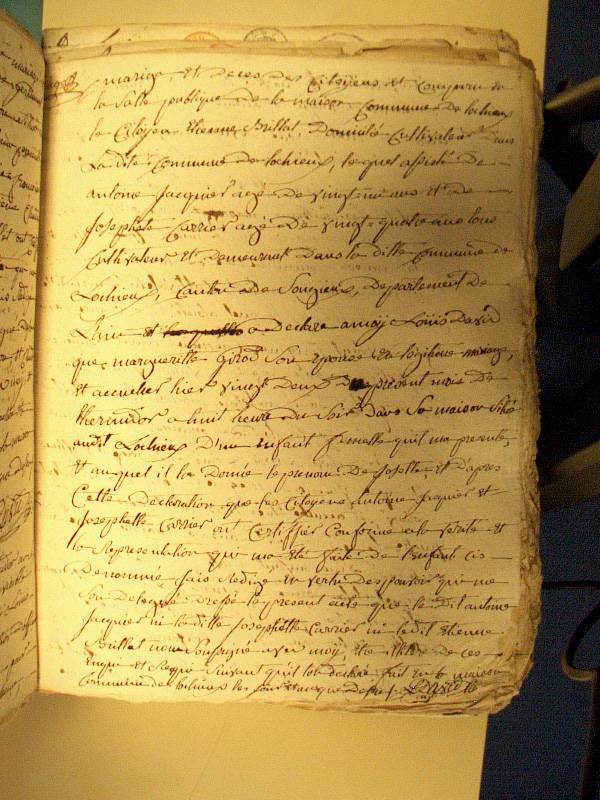 mariage, et Deces Des Citoyens, et Comparu en
la Salle publique de la maison Commune de lochieux
le Citoyen Etienne Brillat, Domicilié Cultivateur Dans
La dite Commune de lochieux, lequel assisté de
antoine Jacquier agé De vingt-neuf ans et de
Josephete Carrier agé De vingt-quatre ans tous
Cultivateur Et Demeurant Dans la ditte Commune de
Lochieux, Canton de Songieux, Departement de
L'ain et a Declare a moy Louis David
que margueritte Girod Son Epouse En legitime mariage,
et accoucher hier vingt Deux Du present mois De
thermidor a huit heure du Soir Dans Sa maison Sise
audit Lochieux D'un Enfant femelle qu'il ma presenté,
Et auquel il a Donné le prenom De Josette, Et d'apres
Cette Declaration que les Citoyens Antoine Jaquier et
Josephette Carrier ont Certiffier Conforme a la verité et
la Representation qui ma Eté faite De l'Enfant cis
Denommée, Jaio Redigé En vertu Des pouvoir qui me
Son Delegué Dressé le present acte que le dit antoine
Jacquier ni la ditte Josephette Carrier ni ledit Etienne
Brillat nont Soussigné avec moy, Etre illitere de ces
Enquis et Requis Suivant qu'il lon declaré fait En la maison
Commune de lochieux les Jour et an que Dessus David